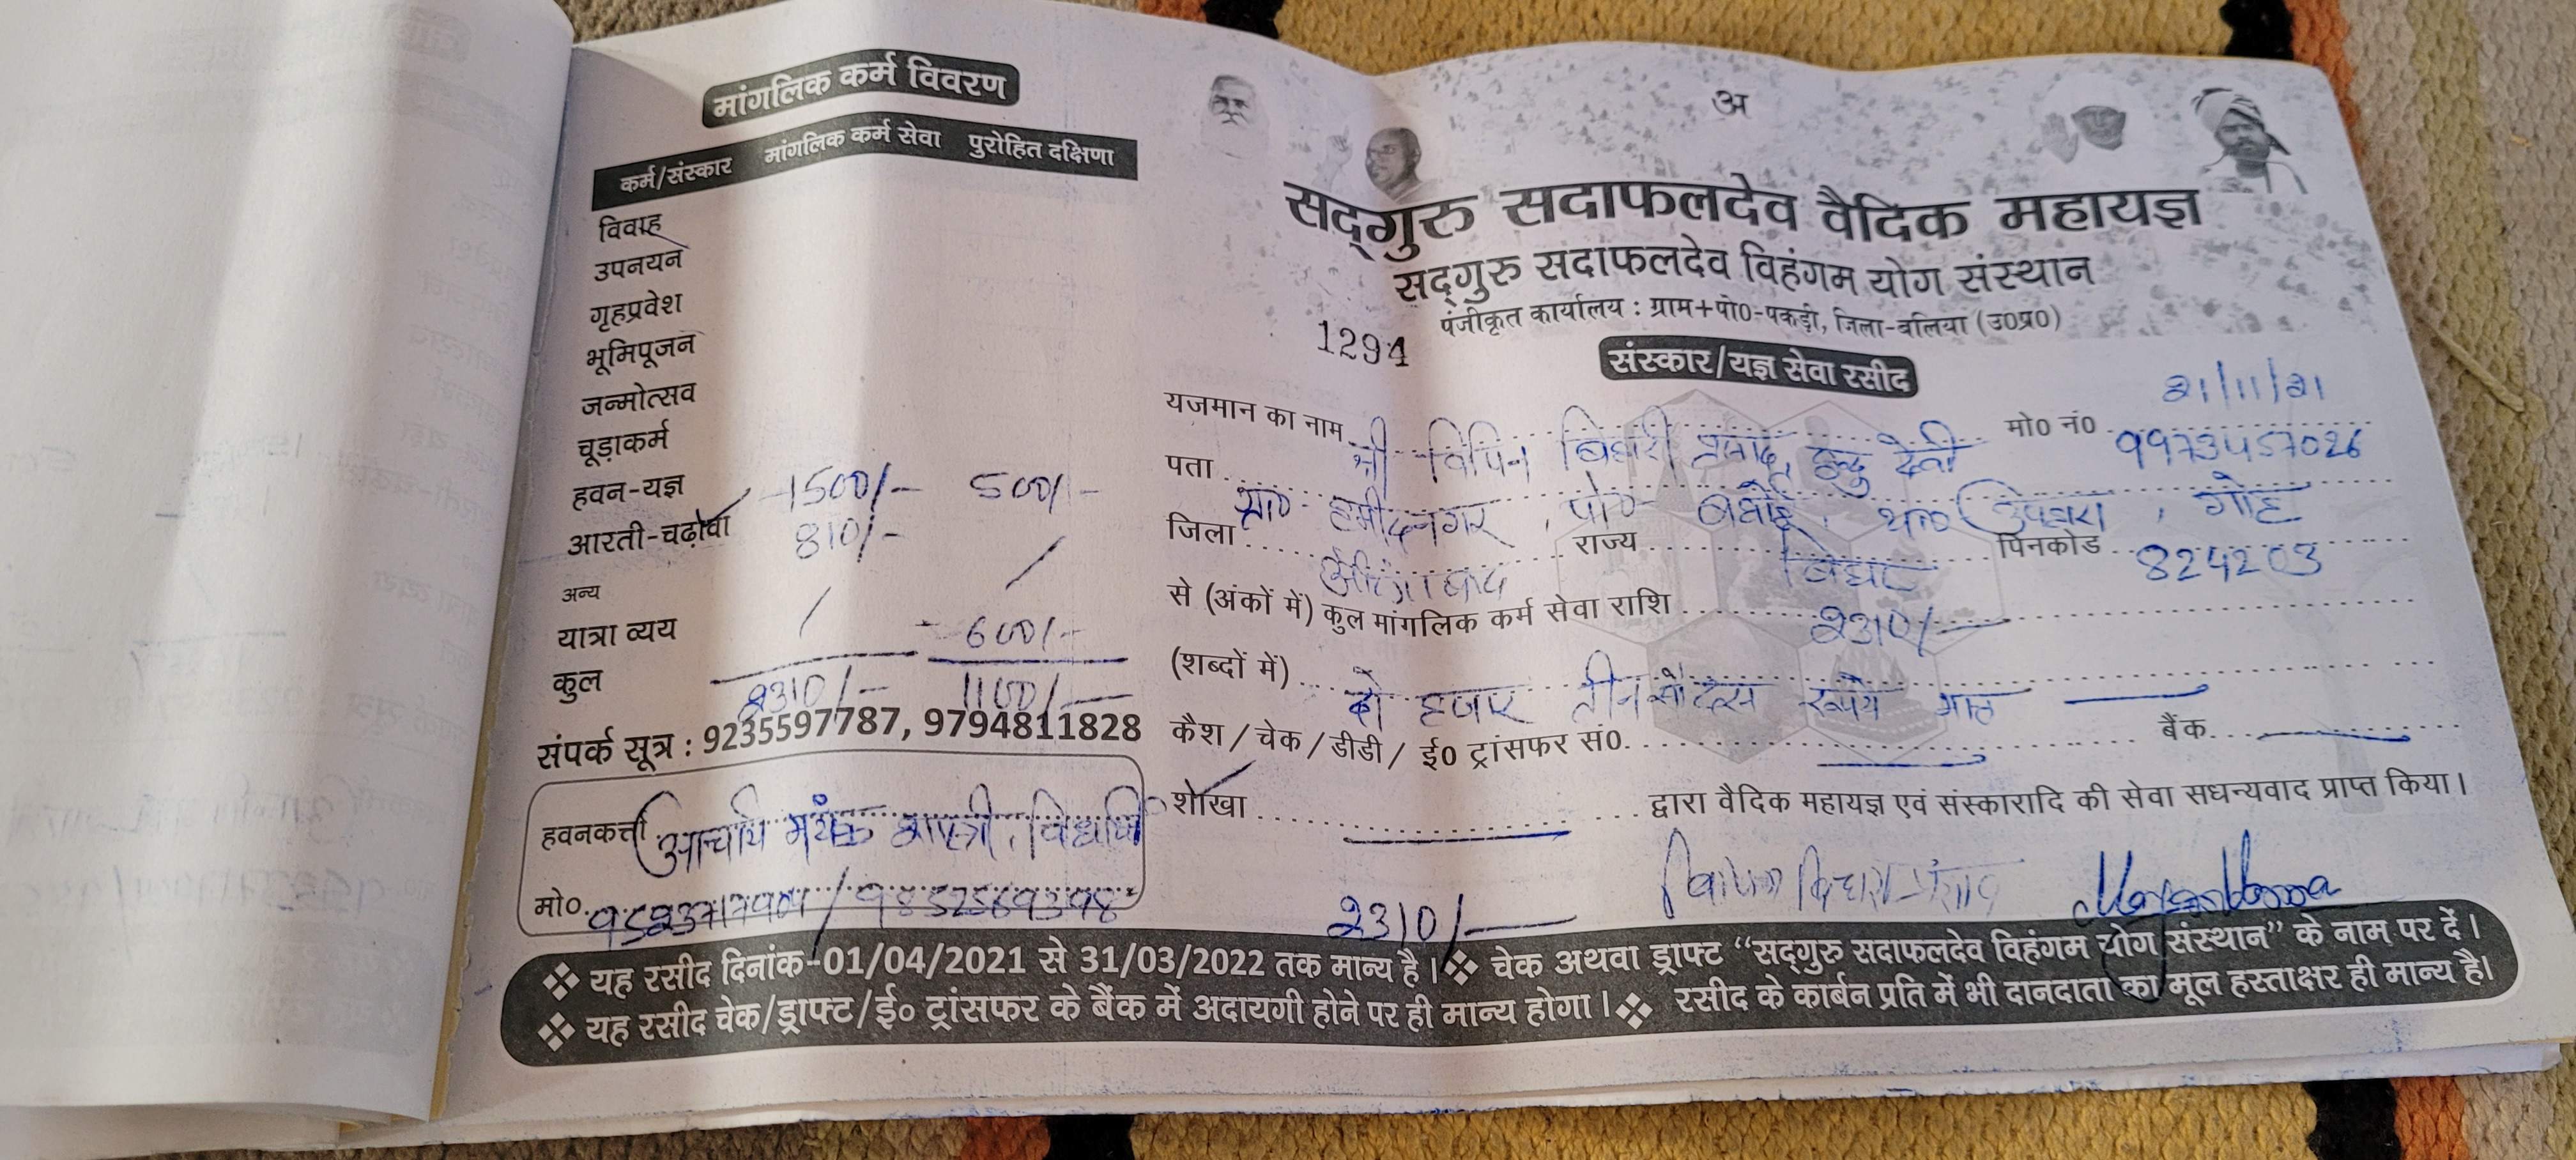 मांगलिक कर्म विवरण
कर्म/संस्कार मांगलिक कर्म सेवा पुरोहित दक्षिणा
विवाह
उपनयन
गृहप्रवेश
भूमिपूजन
जन्मोत्सव
चूड़ाकर्म
हवन-यज्ञ 1500/- 500/-
आरती-चढ़ावा 810/-
अन्य
यात्रा व्यय 600/-
कुल 2310/- 1100/-
संपर्क सूत्र : 9235597787, 9794811828
हवनकर्त्ता आचार्य मयंक शास्त्री,
मो०
अ
सद्गुरु सदाफलदेव वैदिक महायज्ञ
सद्गुरु सदाफलदेव विहंगम योग संस्थान
पंजीकृत कार्यालय : ग्राम+पो0-पकड़ी, जिला-बलिया (उ0प्र0)
1294
संस्कार/यज्ञ सेवा रसीद
21/11/21
यजमान का नाम श्री विपिन बिहारी प्रसाद, इन्दु देवी मो0 नं0 9973457026
पता ग्रा०- हमीदनगर, पो०- गोह
जिला औरंगाबाद राज्य बिहार पिनकोड 824203
से (अंकों में) कुल मांगलिक कर्म सेवा राशि 2310/-
(शब्दों में) दो हजार तीन सौ दस रूपये मात्र
कैश / चेक / डीडी / ई0 ट्रांसफर सं0. बैंक
शाखा द्वारा वैदिक महायज्ञ एवं संस्कारादि की सेवा सधन्यवाद प्राप्त किया।
2310/-
❖ यह रसीद दिनांक-01/04/2021 से 31/03/2022 तक मान्य है। ❖ चेक अथवा ड्राफ्ट “सद्गुरु सदाफलदेव विहंगम योग संस्थान” के नाम पर दें।
❖ यह रसीद चेक/ड्राफ्ट/ई० ट्रांसफर के बैंक में अदायगी होने पर ही मान्य होगा। ❖ रसीद के कार्बन प्रति में भी दानदाता का मूल हस्ताक्षर ही मान्य है।